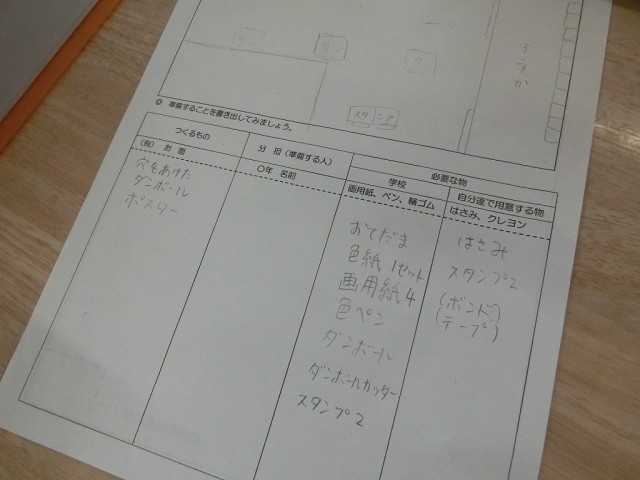 ダ
ダン
ダ
ろうか
スタンプ
◎ 準備することを書き出してみましょう。
つくるもの
分担(準備する人)
必要な物
学校
自分達で用意する物
(例) お面
〇年 名前
画用紙、ペン、輪ゴム
はさみ、クレヨン
穴をあけた
ダンボール
ポスター
おてだま
色紙1セット
画用紙4
色ペン
ダンボール
ダンボールカッター
スタンプ2
はさみ
スタンプ2
(ボンド)
(テープ)